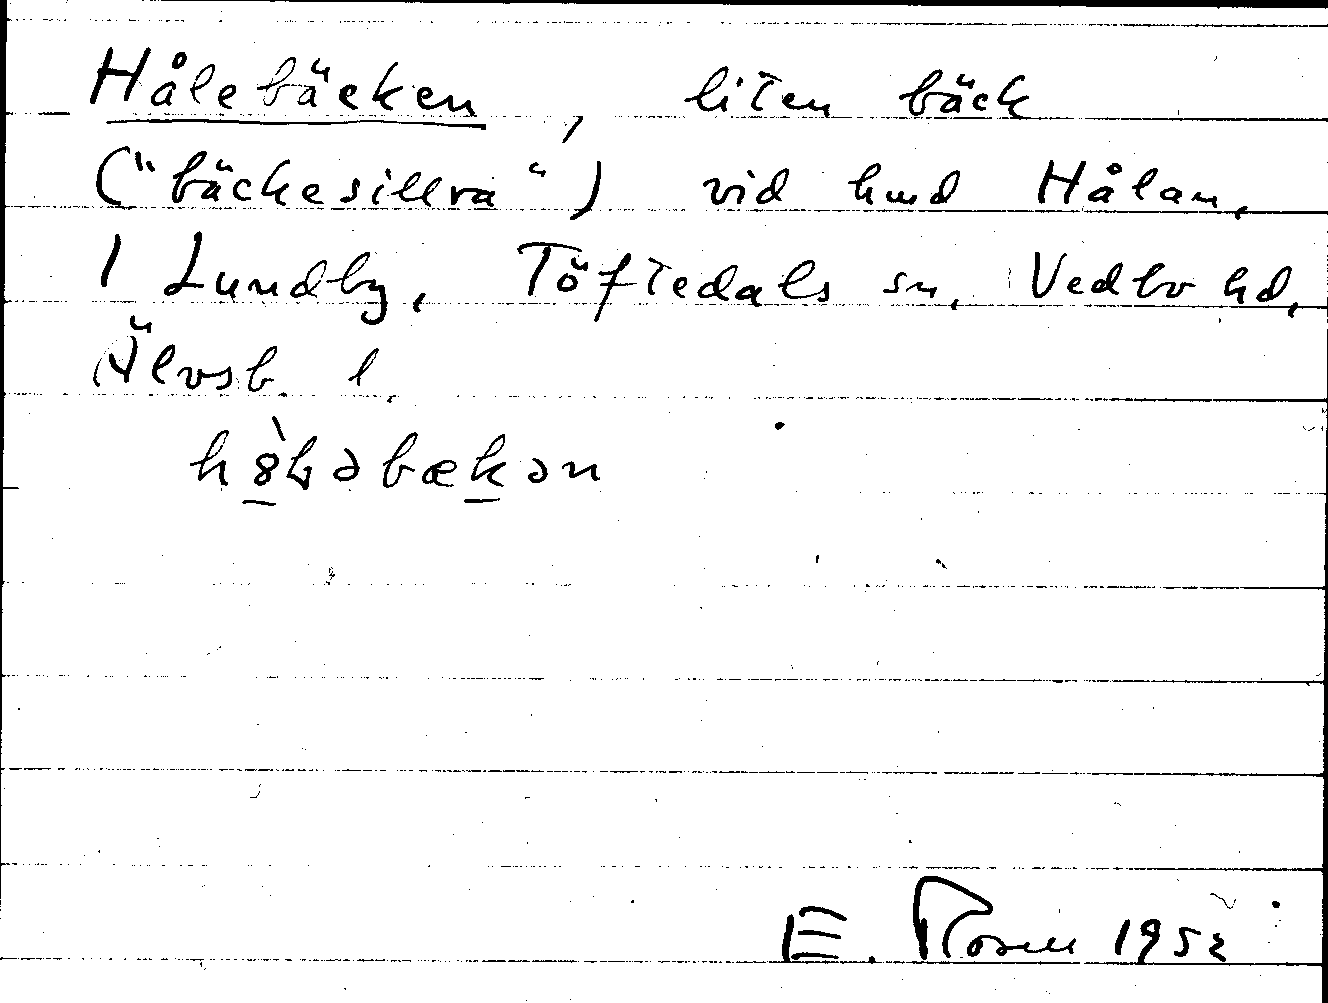 Hålebäcken, liten bäck
("bäckesillra") vid hmd Hålan,
1 Lundby, Töftedals sn, Vedbo hd,
Älvsb. l.
hàɫəbækən
E. Rosen 1952